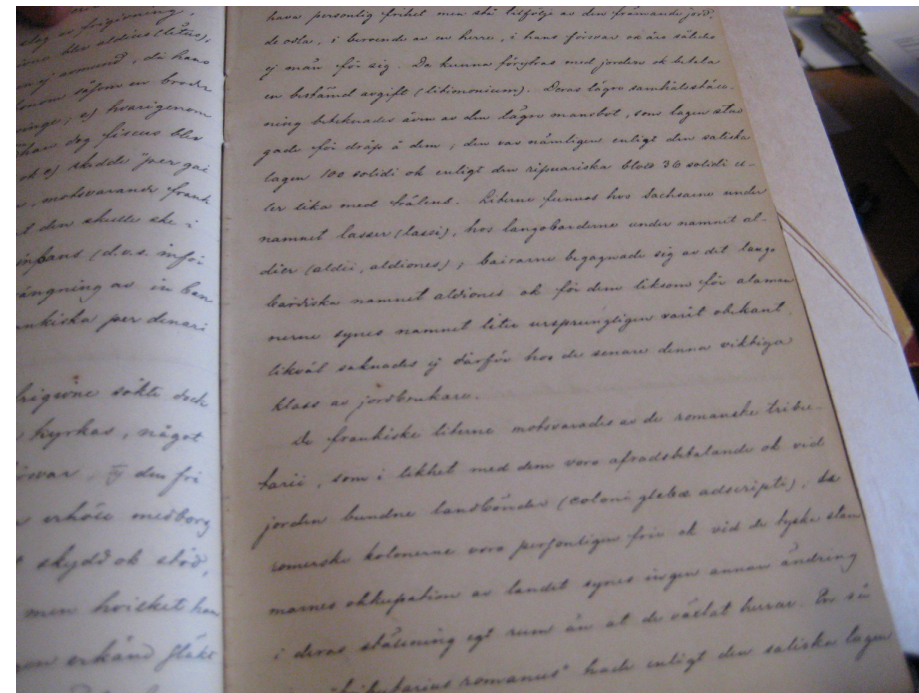 dag av frigivning,
blev aldius (litus),
ej avmund, då hans
såsom en broder
; e) hvarigenom
han dog fiscus blev
ok e) skedde "per gai
, motsvarande frank
t den skulle ske i
infans (d.v.s. inför
ängning av in ban
nkiska per denari
frigivne sökte dock
kyrkas, något
svar, ty den fri
erhöll medborg
skydd ok stöd,
men hvilket han
erkänd släkt
hava personlig frihet men stå till följe av den främmande jord,
de odla, i beroende av en herre, i hans försvar ok äro således
ej män för sig. De kunna föryttras med jorden ok betala
en bestämd avgift (litimonium). Deras lägre samhällsställ-
ning betecknades även av den lägre mansbot, som lagen stad
gade för dråp å dem; den var nämligen enligt den saliska
lagen 100 solidi ok enligt den ripuariska blott 36 solidi el-
ler lika med trälens. Literne funnos hos Sachsarne under
namnet lasser (lassi), hos langobarderne under namnet al-
dier (aldii, aldiones); bairarne begagnade sig av det lango
bardiska namnet aldiones ok för dem liksom för alaman
nerne synes namnet liti ursprungligen varit obekant,
likväl saknades ej därför hos de senare denna viktiga
klass av jordbrukare.
De frankiske literne motsvarades av de romanske tribu-
tarii, som i likhet med dem voro afradsbetalande ok vid
jorden bundne landbönder (coloni glebæ adscripti), de
romerske kolonerne voro personligen frie ok vid de tyska stam
marnes okkupation av landet synes ingen annan ändring
i deras ställning egt rum än at de växlat herrar. En så
"tributarius romanus" hade enligt den saliska lagen